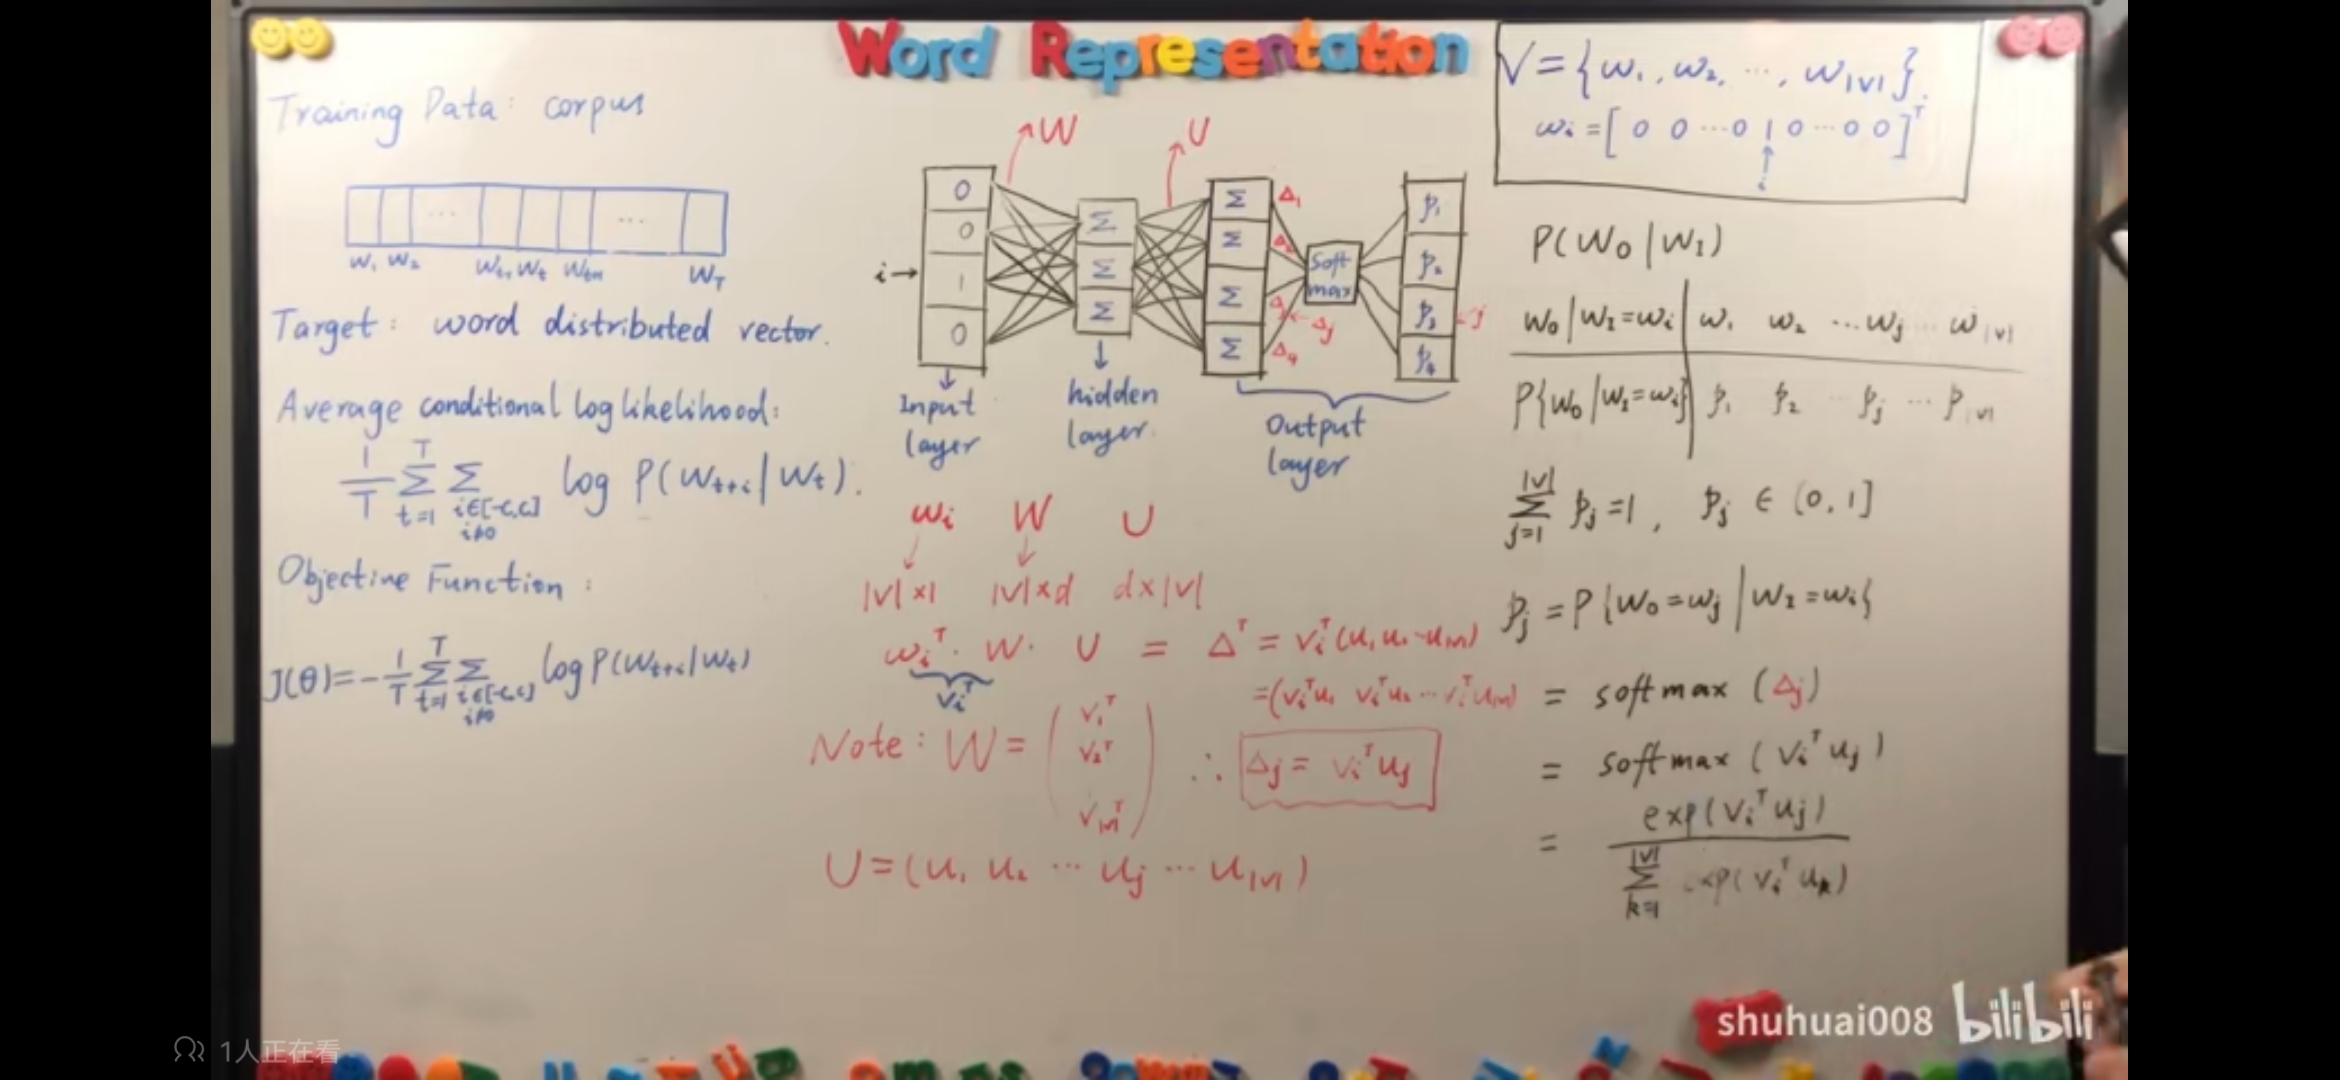 Word Representation
Training Data: corpus
...
...
w₁ w₂ wₜ₋₁ wₜ wₜ₊₁ w_T
Target: word distributed vector.
Average conditional log likelihood:
1/T Σ_{t=1}^{T} Σ_{i∈[-c,c], i≠0} log P(w_{t+i}|w_t).
Objective Function:
J(θ) = -1/T Σ_{t=1}^{T} Σ_{i∈[-c,c], i≠0} log P(w_{t+i}|w_t)
W
U
i→
0
0
1
0
Σ
Σ
Σ
Σ
Σ
Σ
Σ
Δ₁
Δ₂
Δ₃ ← Δj
Δ₄
Soft max
p₁
p₂
p₃ ← j
p₄
Input layer
hidden layer.
Output layer
wᵢ W U
|V|×1 |V|×d d×|V|
wᵢᵀ · W · U = Δᵀ = vᵢᵀ(u₁ u₂ ··· u_|V|)
vᵢᵀ
= (vᵢᵀu₁ vᵢᵀu₂ ··· vᵢᵀu_|V|)
Note: W = ( v₁ᵀ
v₂ᵀ
⋮
v_|V|ᵀ )
∴ Δj = vᵢᵀuj
U = (u₁ u₂ ··· uj ··· u_|V|)
V = {w₁, w₂, ···, w_|V|}.
wᵢ = [0 0 ···0 1 0 ···0 0]ᵀ
↑
i
P(w_O | w_I)
w_O | w_I = wᵢ | w₁ w₂ ··· wj ··· w_|V|
P{w_O | w_I = wᵢ} | p₁ p₂ ··· pj ··· p_|V|
Σ_{j=1}^{|V|} pj = 1, pj ∈ (0, 1]
pj = P{w_O = wj | w_I = wᵢ}
= softmax (Δj)
= softmax (vᵢᵀuj)
= exp(vᵢᵀuj) / Σ_{k=1}^{|V|} exp(vᵢᵀu_k)
shuhuai008 bilibili
1人正在看